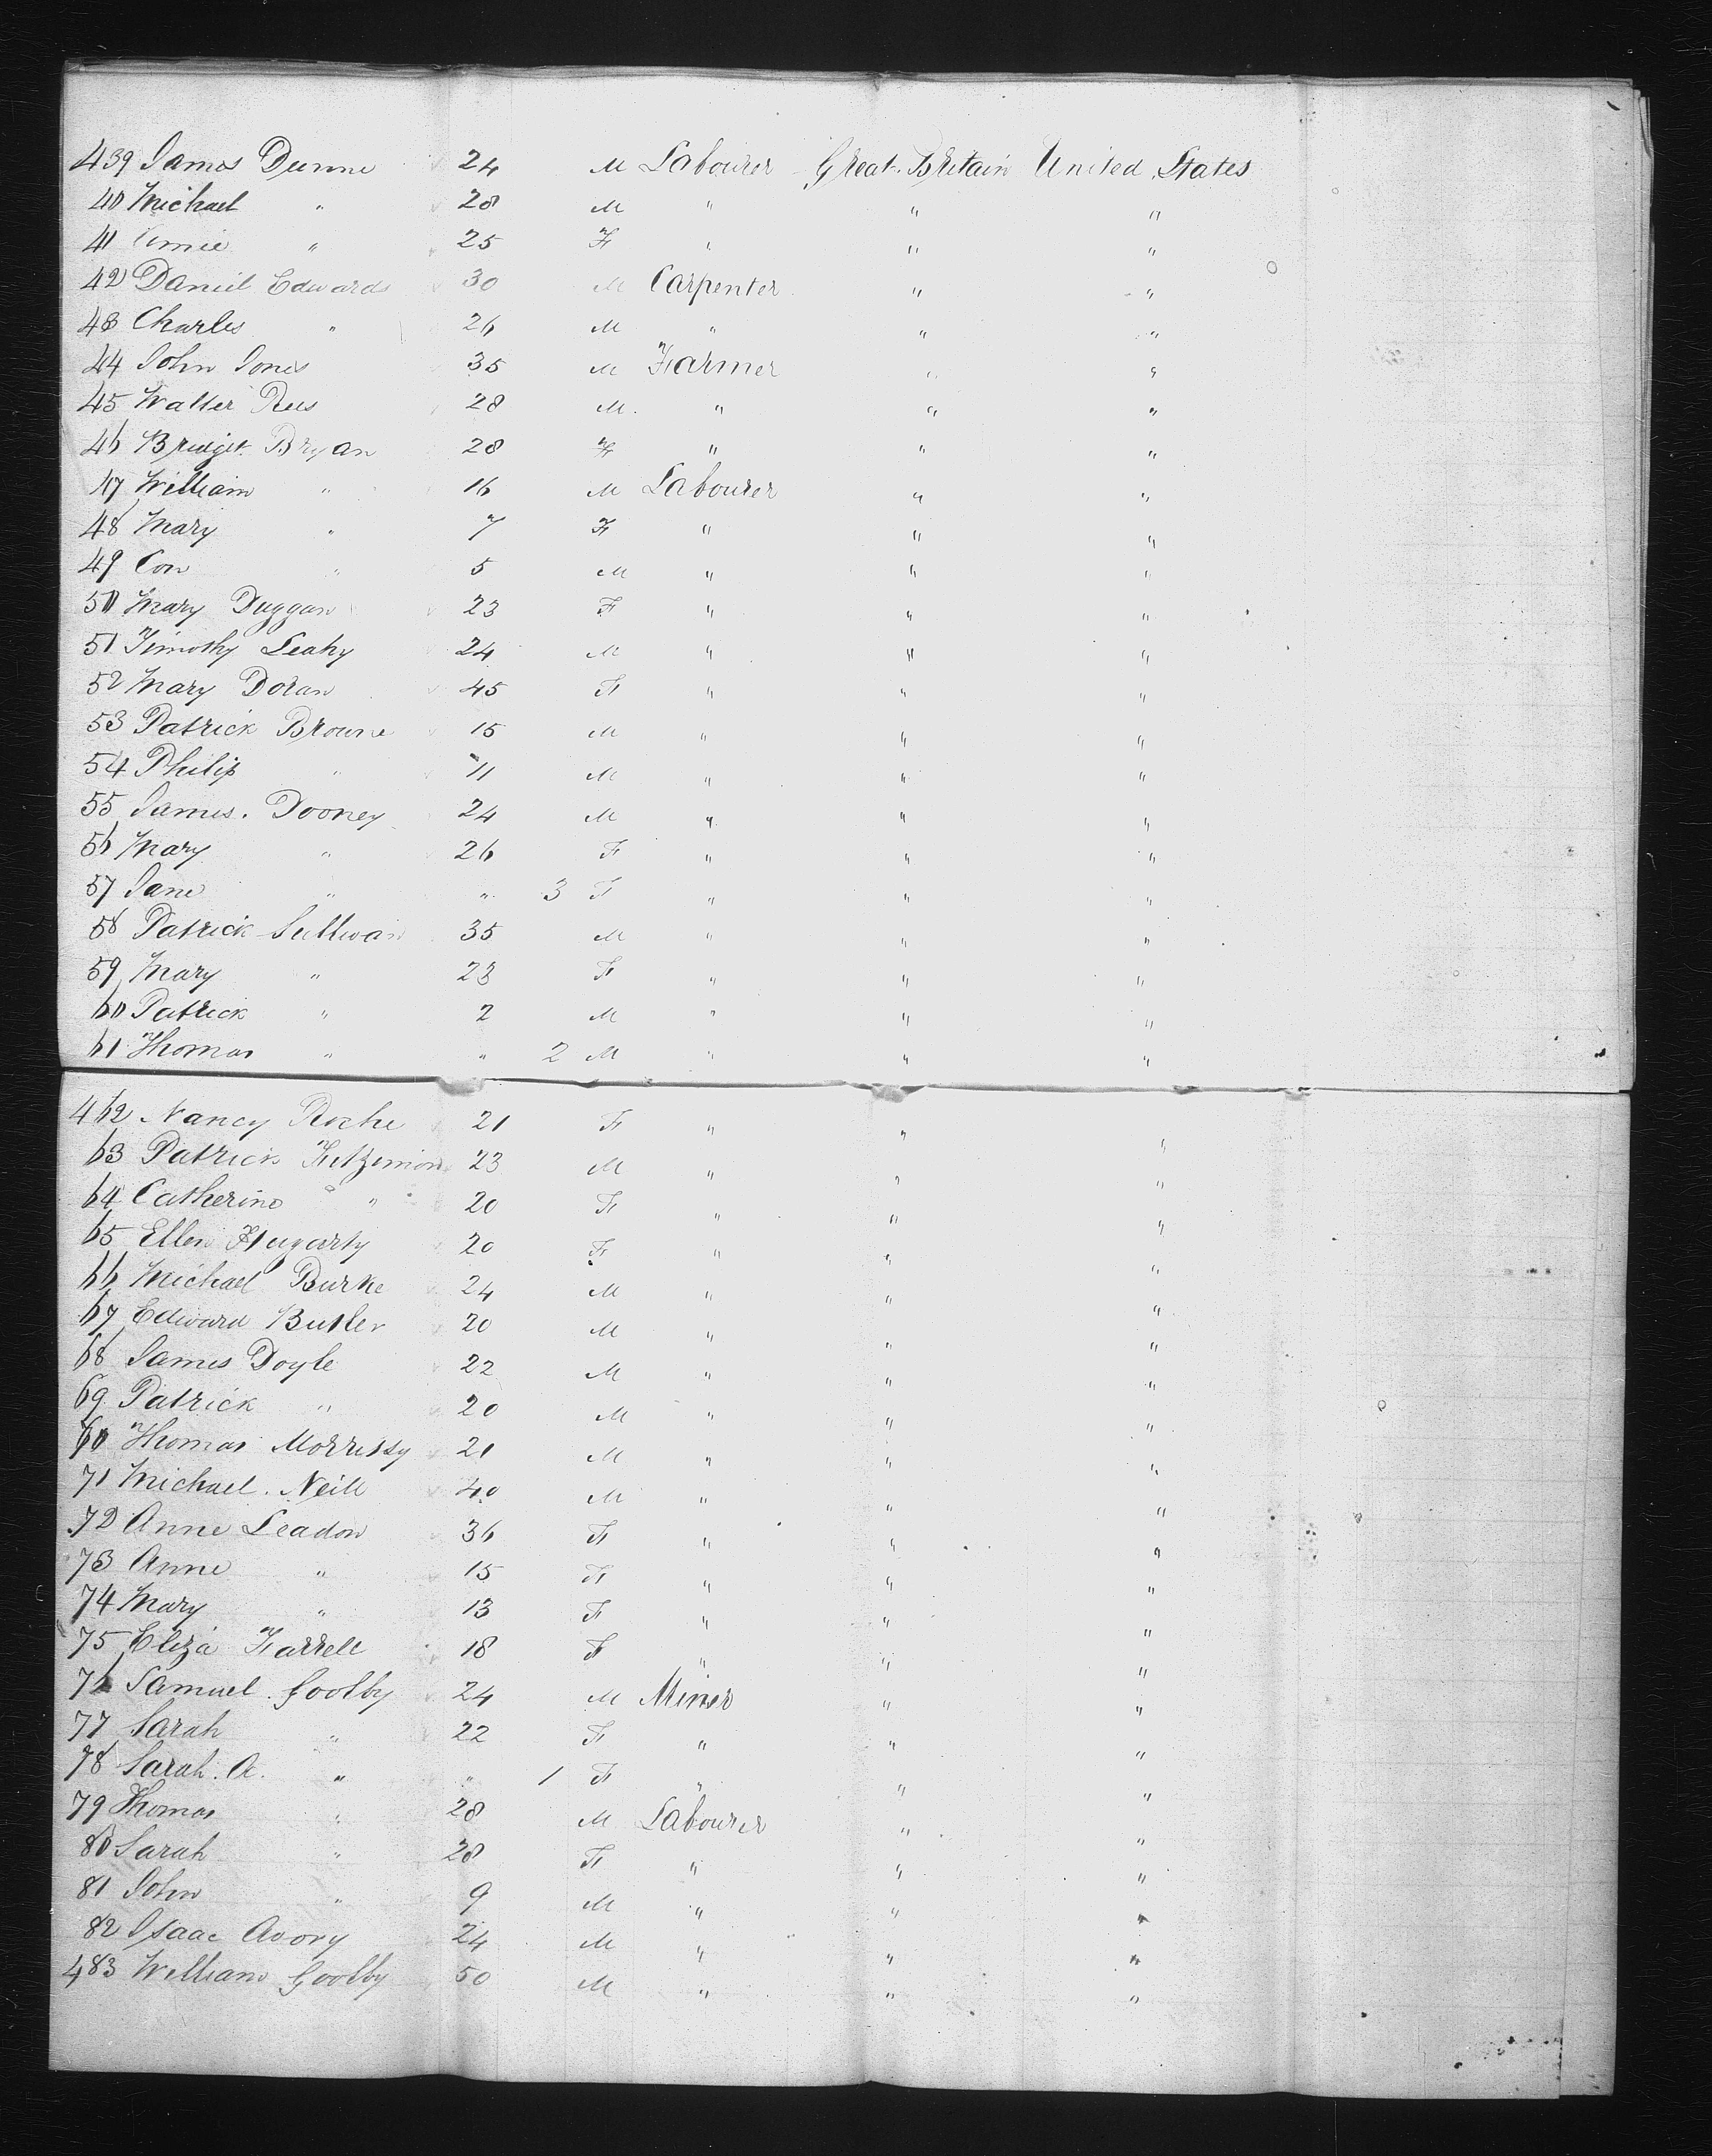 439 James Dunne 24 M Labourer Great Britain United States
40 Michael " 28 M " " "
41 Annie " 25 F " " "
42 Daniel Edwards 30 M Carpenter " "
43 Charles " 26 M " " "
44 John Jones 35 M Farmer " "
45 Walter Rees 28 M. " " "
46 Bridget Bryan 28 F " " "
47 William " 16 M Labourer " "
48 Mary " 7 F " " "
49 Con " 5 M " " "
50 Mary Duggan 23 F " " "
51 Timothy Leahy 24 M " " "
52 Mary Doran 45 F " " "
53 Patrick Browne 15 M " " "
54 Philip " 11 M " " "
55 James. Dooney 24 M " " "
56 Mary " 26 F " " "
57 Jane " " 3 F " " "
58 Patrick Sullivan 35 M " " "
59 Mary " 23 F " " "
60 Patrick " 2 M " " "
61 Thomas " " 2 M " " "
462 Nancy Roche 21 F " " "
63 Patrick 23 M " " "
64 Catherine " 20 F " " "
65 Ellen 20 F " " "
66 Michael Burke 24 M " " "
67 Edward Butler 20 M " " "
68 James Doyle 22 M " " "
69 Patrick " 20 M " " "
70 Thomas Morrissy 21 M " " "
71 Michael. Neill 40 M " " "
72 Anne Leadon 36 F " " "
73 Anne " 15 F " " "
74 Mary " 13 F " " "
75 Eliza Farrell 18 F " " "
76 Samuel Goolby 24 M Miner " "
77 Sarah " 22 F " " "
78 Sarah. A. " " 1 F " " "
79 Thomas " 28 M Labourer " "
80 Sarah " 28 F " " "
81 John " 9 M " " "
82 Isaac Avory 24 M " " "
483 William Goolby 50 M " " "